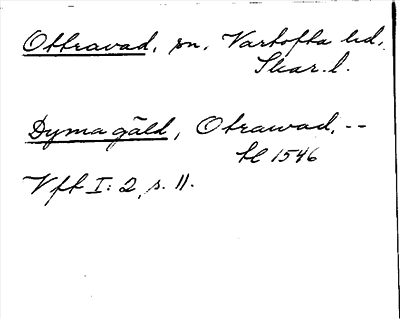 Ottravad, sn, Vartofta hd,
Skar. l.
Dyma gäld, Otrawad, --
hl 1546
Vft I: 2, s. 11.